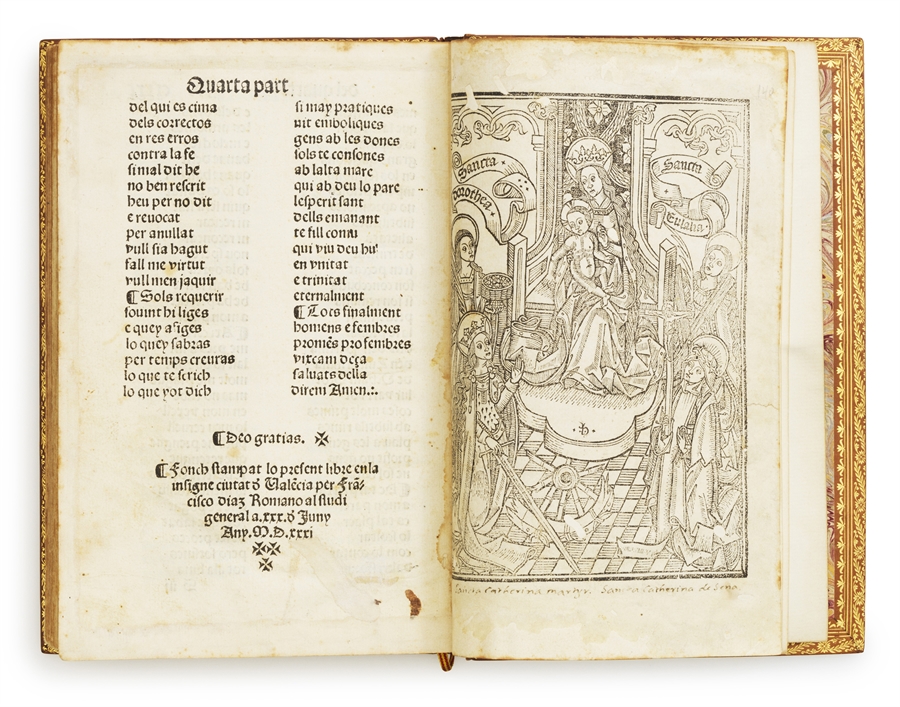 Quarta part
del qui es cima
dels correctos
en res erros
contra la fe
si mal dit be
no ben rescrit
heu per no dit
e reuocat
per anullat
vull sia hagut
fall me virtut
vull men jaquir
¶ Sols requerir
souint hi liges
e quey afiges
lo quey sabras
per temps creuras
lo que te scrich
lo que yot dich
si may pratiques
vit emboliques
gens ab les dones
sols te consones
ab lalta marc
qui ab deu lo pare
lesperit sant
dells emanant
te fill comu
qui viu deu hu
en vnitat
e trinitat
eternalment
¶ Tots finalment
homens e fembres
promēs pro fembres
vixcam deça
saluats della
direm Amen.:.
¶ Deo gratias. ✠
¶ Fonch stampat lo present libre enla
insigne ciutat d̄ Ualēcia per Frā-
cisco diaz Romano al studi
general a.xxx.d̄ Juny
Any. M.D.xxxi
Sancta
dorothea
Sancta
Eulalia
Sancta Catherina martyr. Sancta Catherina de Sena